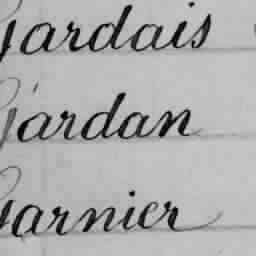 Gardais
Gardan
Garnier